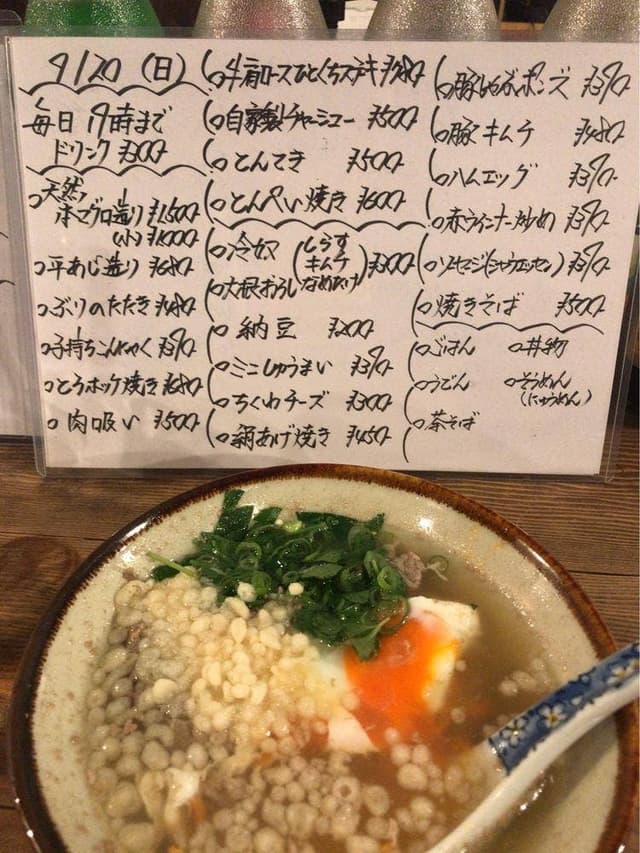 9/20 (日)
毎日19時まで
ドリンク ¥300
○天然
本マグロ造り ¥1500
(小) ¥1000
○平あじ造り ¥680
○ぶりのたたき ¥480
○子持ちこんにゃく ¥390
○とろホッケ焼き ¥680
○肉吸い ¥500
○牛肩ロースひとくちステーキ ¥780
○自家製チャーシュー ¥500
○とんてき ¥500
○とんぺい焼き ¥600
○冷奴 (しらす キムチ なめたけ) ¥300
○大根おろし
○納豆 ¥200
○ミニしゅうまい ¥390
○ちくわチーズ ¥300
○絹あげ焼き ¥450
○豚しゃぶポンズ ¥390
○豚キムチ ¥480
○ハムエッグ ¥390
○赤ウィンナー炒め ¥390
○ソーセージ(シャウエッセン) ¥390
○焼きそば ¥500
○ごはん ○丼物
○うどん ○そうめん
(にゅうめん)
○茶そば